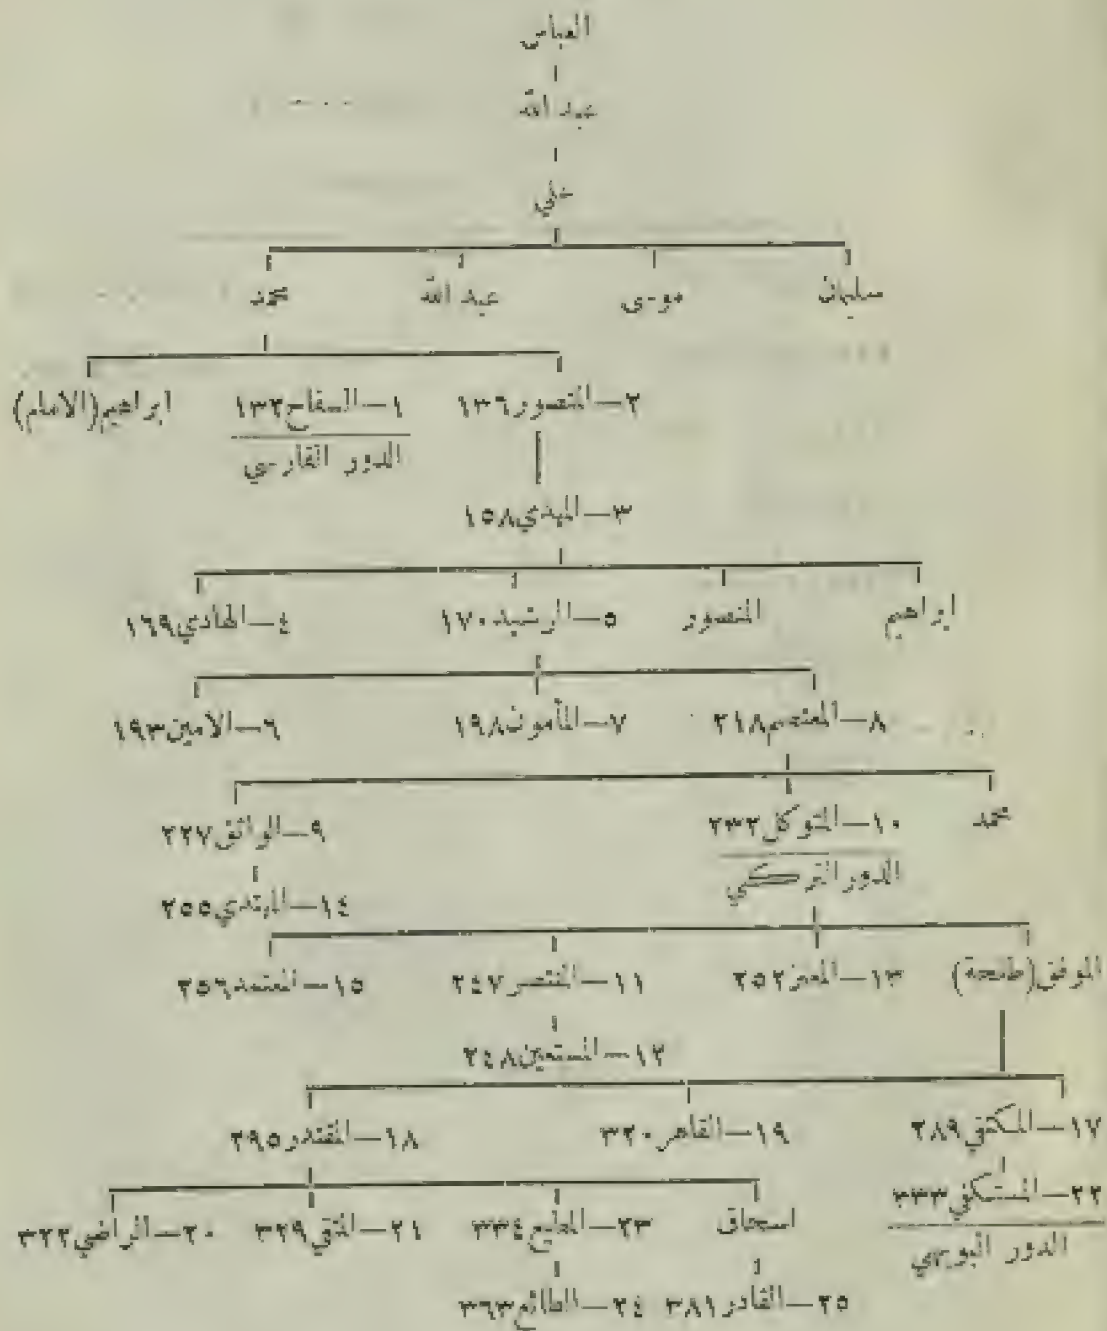 العباس
عبد الله
علي
سليمان موسى عبد الله محمد
٢—المنصور١٣٦ ١—السفاح١٣٢ ابراهيم(الامام)
الدور الفارسي
٣—المهدي١٥٨
ابراهيم المنصور ٥—الرشيد١٧٠ ٤—الهادي١٦٩
٨—المعتصم٢١٨ ٧—المأمون١٩٨ ٦—الامين١٩٣
محمد ١٠—المتوكل٢٣٢ ٩—الواثق٢٢٧
الدور التركي ١٤—المهتدي٢٥٥
الموفق(طلحة) ١٣—المعتز٢٥٢ ١١—المنتصر٢٤٧ ١٥—المعتمد٢٥٦
١٢—المستعين٢٤٨
١٧—المكتفي٢٨٩ ١٩—القاهر٣٢٠ ١٨—المقتدر٢٩٥
٢٢—المستكفي٣٣٣ اسحاق ٢٣—المطيع٣٣٤ ٢١—المتقي٣٢٩ ٢٠—الراضي٣٢٢
الدور البويهي
٢٥—القادر٣٨١ ٢٤—الطائع٣٦٣